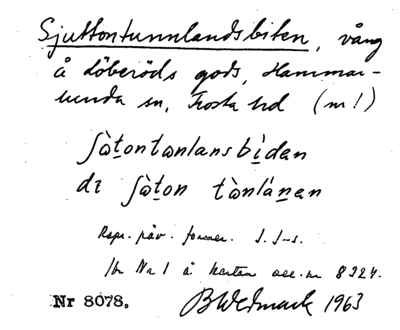 Sjuttontunnlandsbiten, vång
å Löberöds gods, Hammar-
lunda sn, Frosta hd (nr 1)
ʃàtontɷnlansbìdan
di ʃàton tɷ̀nlánan
Repr. påv. former. S. J-s.
Nr 1 å kartan acc. nr 8324.
Nr 8078. B Wedmark 1963